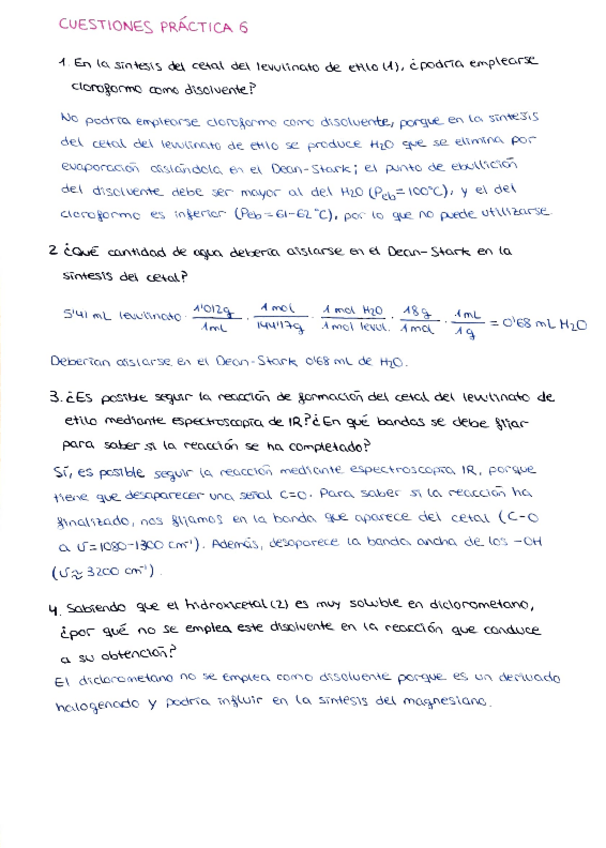 CUESTIONES PRÁCTICA 6
1. En la síntesis del cetal del levulinato de etilo (1), ¿podría emplearse
cloroformo como disolvente?
No podría emplearse cloroformo como disolvente, porque en la síntesis
del cetal del levulinato de etilo se produce H₂O que se elimina por
evaporación aislándola en el Dean-Stark; el punto de ebullición
del disolvente debe ser mayor al del H₂O (Peb = 100°C), y el del
cloroformo es inferior (Peb = 61-62 °C), por lo que no puede utilizarse.
2 ¿Qué cantidad de agua debería aislarse en el Dean-Stark en la
síntesis del cetal?
5'41 mL levulinato · 1'012g / 1mL · 1 mol / 144'17g · 1 mol H₂O / 1 mol levul. · 18 g / 1 mol · 1mL / 1 g = 0'68 mL H₂O
Deberían aislarse en el Dean-Stark 0'68 mL de H₂O.
3. ¿Es posible seguir la reacción de formación del cetal del levulinato de
etilo mediante espectroscopía de IR? ¿En qué bandas se debe fijar
para saber si la reacción se ha completado?
Sí, es posible seguir la reacción mediante espectroscopía IR, porque
tiene que desaparecer una señal C=O. Para saber si la reacción ha
finalizado, nos fijamos en la banda que aparece del cetal (C-O
a ʋ = 1080-1300 cm⁻¹). Además, desaparece la banda ancha de los -OH
(ʋ ≈ 3200 cm⁻¹).
4. Sabiendo que el hidroxicetal (2) es muy soluble en diclorometano,
¿por qué no se emplea este disolvente en la reacción que conduce
a su obtención?
El diclorometano no se emplea como disolvente porque es un derivado
halogenado y podría influir en la síntesis del magnesiano.